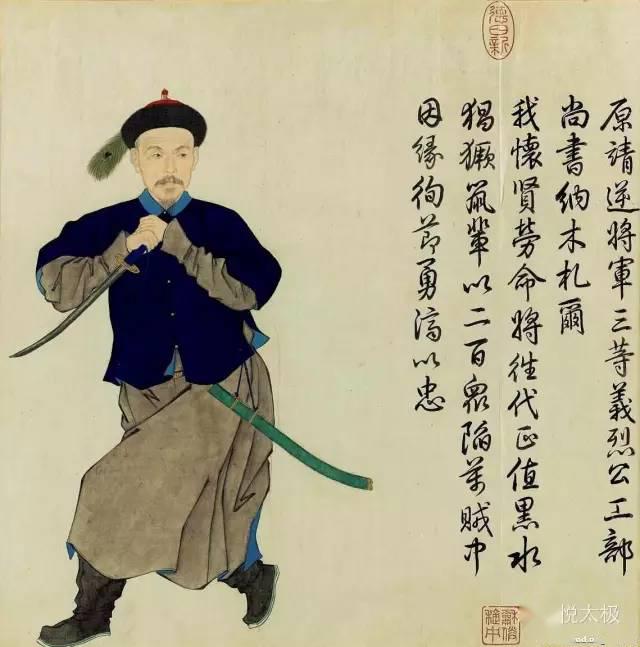 德日新
原靖逆將軍三等義烈公工部
尚書納木札爾
我懷賢勞命將往代正值黑水
猖獗鼠輩以二百眾陷萬賊中
因緣徇節勇濟以忠
悦太极